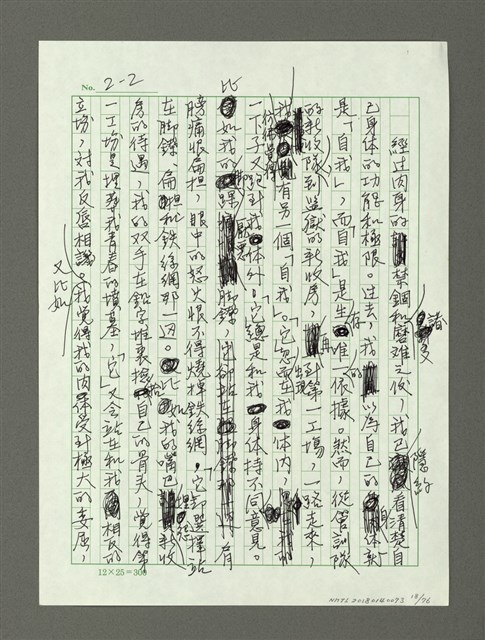 No. 2-2
經過肉身的禁錮和磨難之後，我已隱約看清楚自
己身體的功能和極限。過去，我以為自己的身體就
是「自我」，而「自我」是生存的唯一依據。然而，從管訓隊
的新收隊到監獄的新收房，再到第一工場，一路走來，
我彷彿覺得有另一個「自我」。它忽而出現在我體內，
一下子又跑到我體外，它總是和我身體持不同意見。
比如我的腳踝 腳鐐，它卻站在腳鐐那一邊。有
膀痛恨扁担，眼中的怒火恨不得燒掉鉄絲網，它卻選擇站
在腳鐐、扁担和鉄絲網那一边。比如我的嘴巴 新收
房的待遇，我的双手在鉛字堆裏撿拾自己的骨头，覺得第
一工場是埋葬我青春的墳墓，「它」又会站在和我相反的
立場，对我反唇相譏。我覺得我的肉体受到極大的委屈，
又比如
12×25=300
NMTL20180140093 18/76